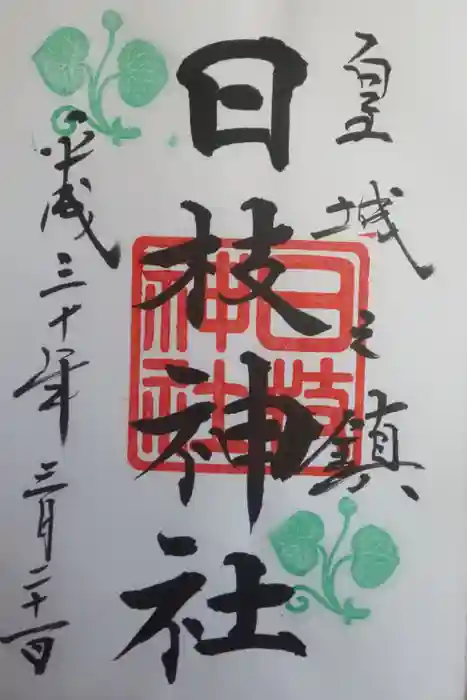 皇城之鎮
日枝神社
平成三十年三月二十一日
日枝
神社